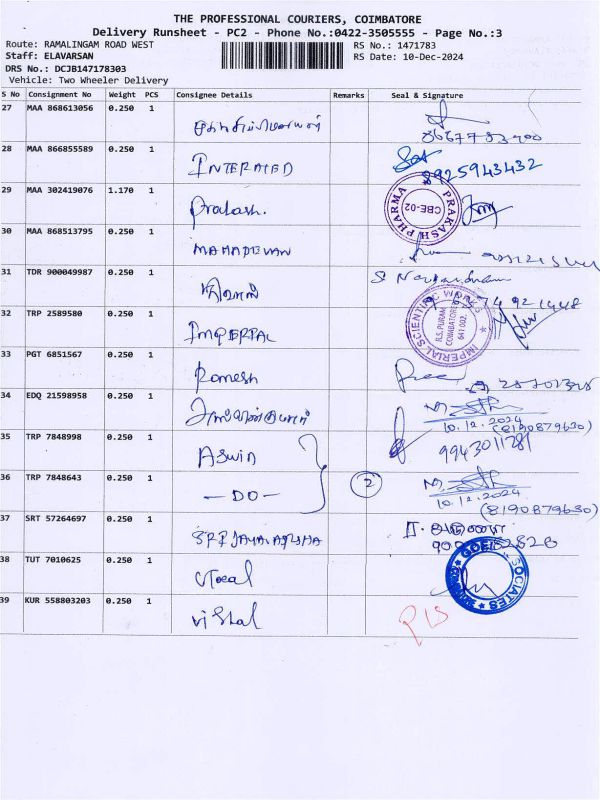 THE PROFESSIONAL COURIERS, COIMBATORE
Delivery Runsheet - PC2 - Phone No.:0422-3505555 - Page No.:3
Route: RAMALINGAM ROAD WEST
Staff: ELAVARSAN
DRS No.: DCJB147178303
Vehicle: Two Wheeler Delivery
RS No.: 1471783
RS Date: 10-Dec-2024
S No Consignment No Weight PCS Consignee Details Remarks Seal & Signature
27 MAA 868613056 0.250 1
28 MAA 866855589 0.250 1 INTERATED 8925943432
29 MAA 302419076 1.170 1 Prakash. PRAKASH PHARMA CBE-02
30 MAA 868513795 0.250 1 MAHADEVAN
31 TDR 900049987 0.250 1
32 TRP 2589580 0.250 1 IMPERIAL IMPERIAL SCIENTIFIC WORKS R.S. PURAM COIMBATORE 641 002.
33 PGT 6851567 0.250 1 Ramesh
34 EDQ 21598958 0.250 1 10.12.2024 (8190879630)
35 TRP 7848998 0.250 1 Aswin 9943011281
36 TRP 7848643 0.250 1 -DO- 2 10.12.2024 (8190879630)
37 SRT 57264697 0.250 1
38 TUT 7010625 0.250 1
39 KUR 558803203 0.250 1 Vishal